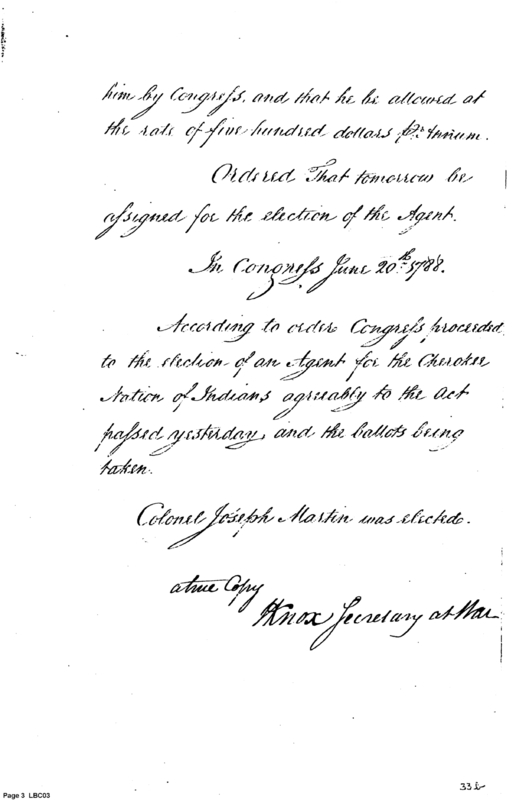 him by Congress, and that he be allowed at
the rate of five hundred dollars ⅌r Annum.
Ordered That tomorrow be
assigned for the election of the Agent.
In Congress June 20th. 1788.
According to order Congress proceeded
to the election of an Agent for the Cherokee
Nation of Indians agreeably to the Act
passed yesterday, and the ballots being
taken.
Colonel Joseph Martin was elected.
a true Copy
HKnox Secretary at War
Page 3 LBC03